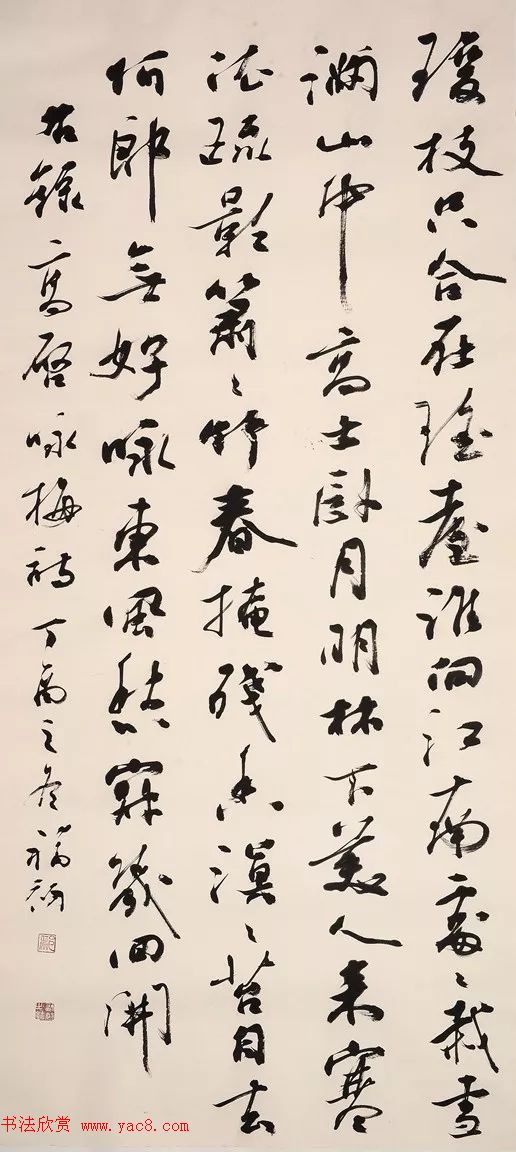 瓊枝只合在瑶臺誰向江南處〻栽雪
滿山中高士卧月明林下美人来寒
依疏影蕭〻竹春掩殘香漠〻苔自去
何郎無好咏東風愁寂幾回開
右錄高啓咏梅詩丁酉之冬福
书法欣赏 www.yac8.com